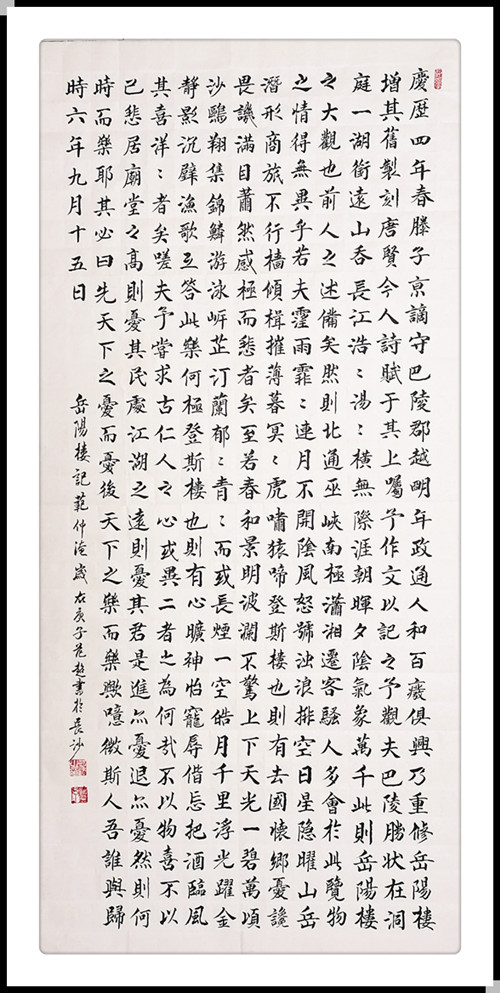 慶歷四年春滕子京謫守巴陵郡越明年政通人和百癈俱興乃重修岳陽樓
增其舊製刻唐賢今人詩賦于其上囑予作文以記之予觀夫巴陵勝狀在洞
庭一湖銜遠山吞長江浩〻湯〻橫無際涯朝暉夕陰氣象萬千此則岳陽樓
之大觀也前人之述備矣然則北通巫峽南極瀟湘遷客騷人多會於此覽物
之情得無異乎若夫霪雨霏〻連月不開陰風怒號濁浪排空日星隱曜山岳
潛形商旅不行檣傾楫摧薄暮冥〻虎嘯猿啼登斯樓也則有去國懷鄉憂讒
畏譏滿目蕭然感極而悲者矣至若春和景明波瀾不驚上下天光一碧萬頃
沙鷗翔集錦鱗游泳岍芷汀蘭郁〻青〻而或長煙一空皓月千里浮光躍金
靜影沉璧漁歌互答此樂何極登斯樓也則有心曠神怡寵辱偕忘把酒臨風
其喜洋〻者矣嗟夫予嘗求古仁人之心或異二者之為何哉不以物喜不以
己悲居廟堂之高則憂其民處江湖之遠則憂其君是進亦憂退亦憂然則何
時而樂耶其必曰先天下之憂而憂後天下之樂而樂歟噫微斯人吾誰與歸
時六年九月十五日
岳陽樓記範仲淹歲在庚子書於長沙